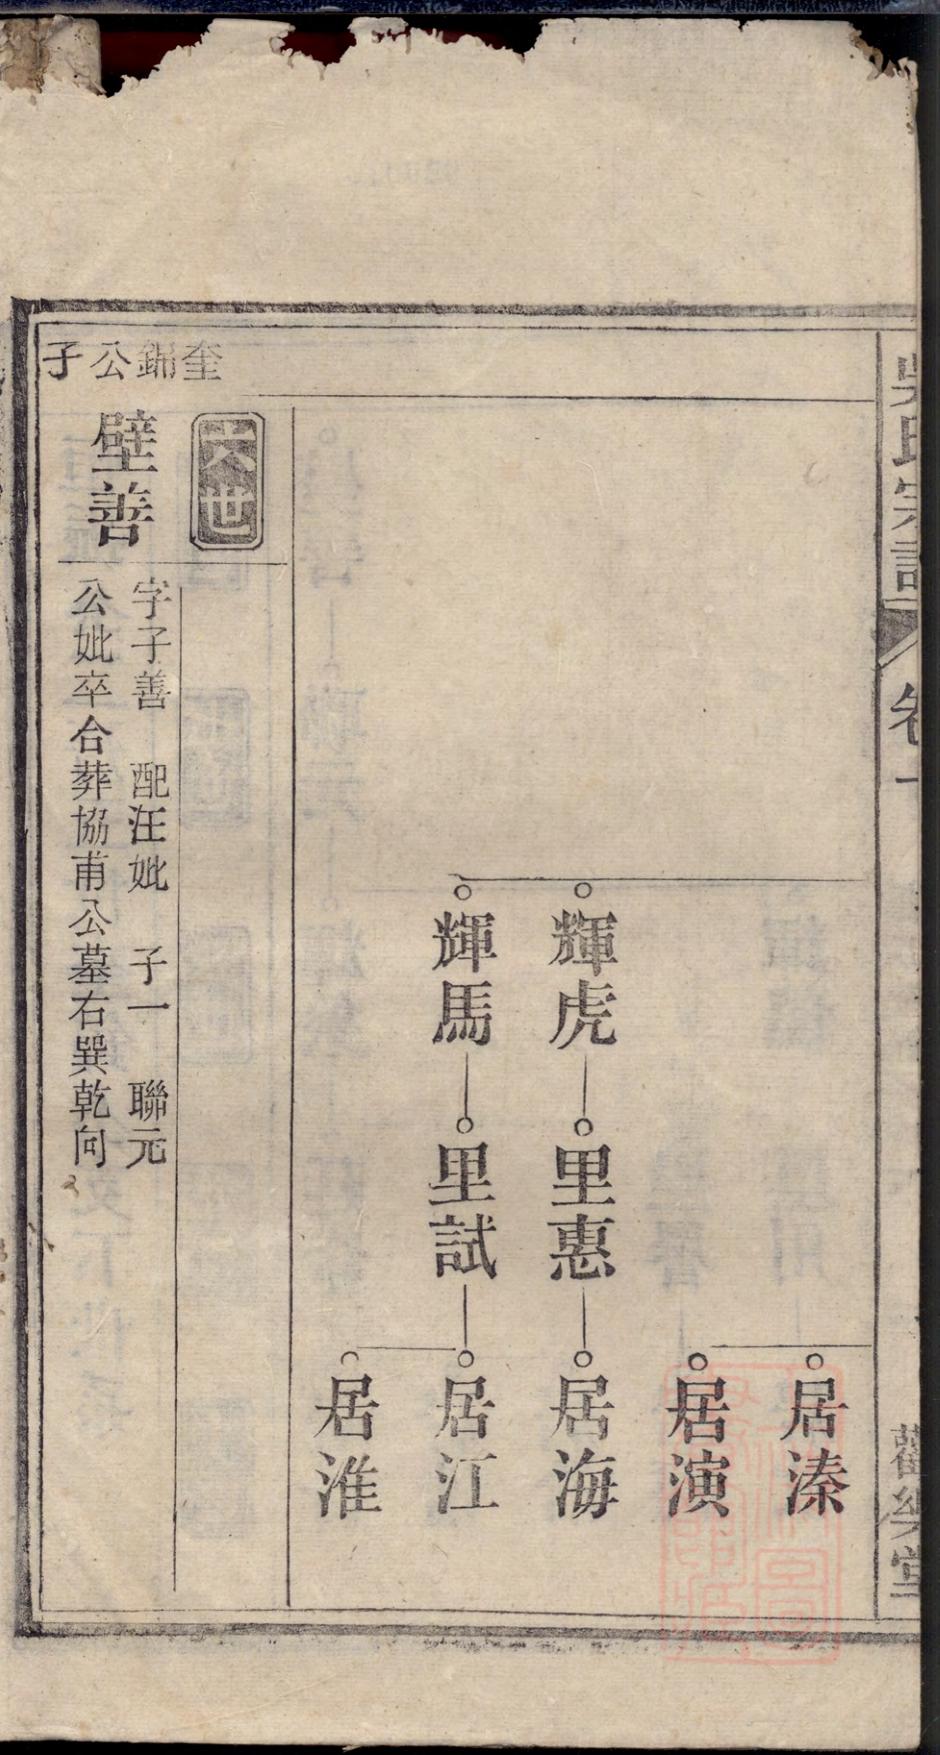 吳氏宗譜
卷一
觀樂堂
輝虎
里惠
居溱
居演
居海
輝馬
里試
居江
居淮
奎錦公子
六世
璧善
字子善 配汪妣 子一 聯元
公妣卒合葬協甫公墓右巽乾向